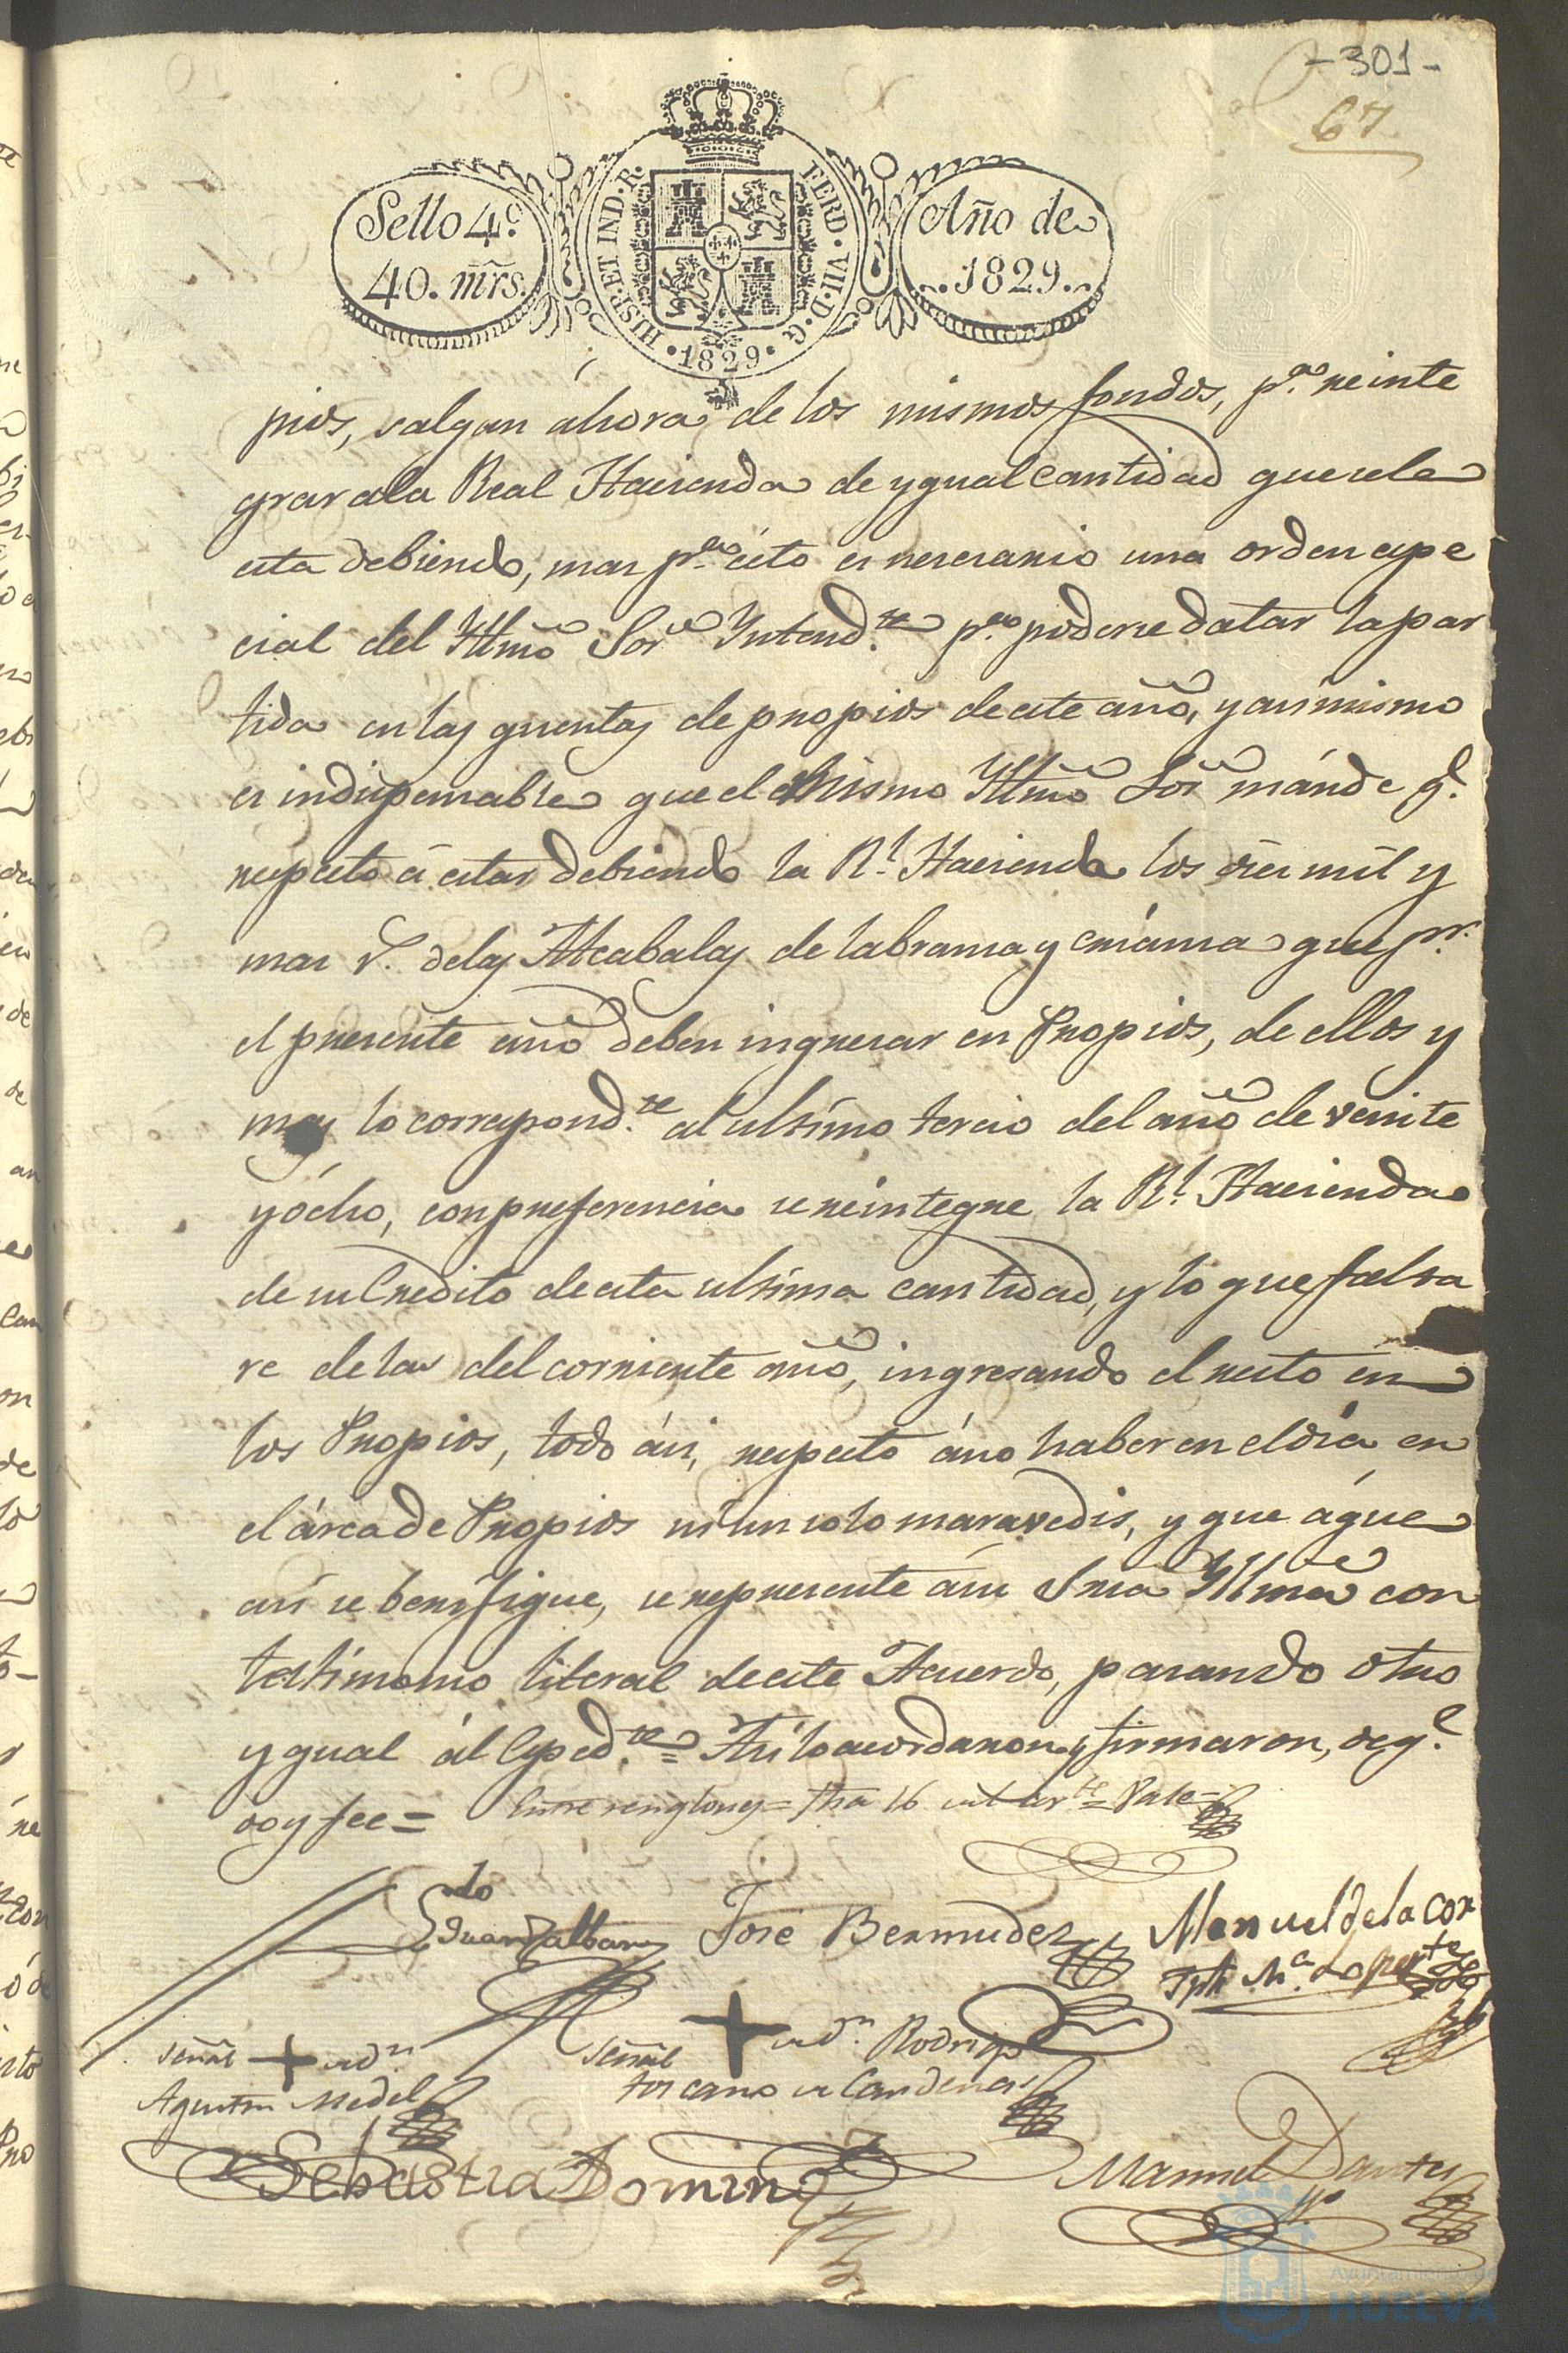 -301-
67
Sello 4.º
40. mrs.
HISP. ET IND. R.
FERD. VII. D. G.
1829
Año de
1829.
pios, salgan áhora de los mismos fondos, p.ª reinte
grar ala Real Hacienda de ygual cantidad que sele
esta debiendo; mas p.ª ésto es nesesario una orden espe
cial del Yltmõ Sor Yntend.te p.ª poderse datar la par
tida en las quentas de propios de este año, y asimismo
es indispensable que el mismo Yltmõ Sor mánde q.e
respecto á estar debiendo la R.l Hacienda los dies mil y
mas r.s delas Alcabalas de labransa y criánsa que p.r
el presente año deben ingresar en Propios, de ellos y
mas lo correspond.te al ultimo tercio del año de veinte
y ócho, con preferencia se reintegre la R.l Hacienda
de su Credito de esta ultima cantidad, y lo que falta
re de las del corriente año, ingresando el resto en
los Propios, todo ási, respecto áno haber en el dia en
el árca de Propios ni un solo maravedis, y que áque
asi se berifique, se represente ásu Sria Yllma con
testimonio literal de este Acuerdo, pasando otro
ygual ál Esped.te = Asi lo acordaron y firmaron, de q.e
doy fee = Entre renglones =
Eduardo
José Bermudez
Manuel de la Cor
te
señal + de
Agustin Medel
señal + de Rodrigo
toscano de Cardenas
Sebastian Domin
Manuel
Ayuntamiento de
HUELVA